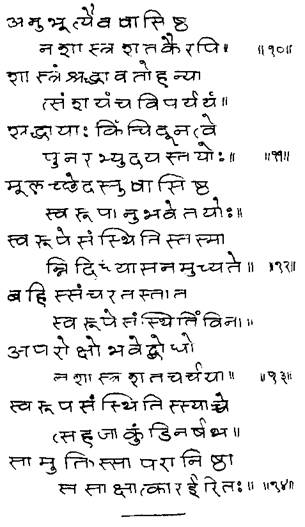 अनुभूत्यैव वासिष्ठ
न शास्त्रशतकैरपि। ॥१०॥
शास्त्रं श्रद्धावतो हन्या
त्संशयंच विपर्ययं॥
श्रद्धायाः किंचिदूनत्वे
पुनरभ्युदयस्तयोः॥ ॥११॥
मूलच्छेदस्तु वासिष्ठ
स्वरूपानुभवे तयोः॥
स्वरूपे संस्थितिस्तस्मा
न्निदिध्यासनमुच्यते॥ ॥१२॥
बहिस्संचरतस्तात
स्वरूपे संस्थितिं विना।
अपरोक्षो भवेद्बोधो
न शास्त्रशतचर्चया॥ ॥१३॥
स्वरूपसंस्थितिस्स्याच्चे
त्सहजा कुंडिनर्षभ॥
सा मुक्तिस्सा परा निष्ठा
स साक्षात्कार ईरितः॥ ॥१४॥